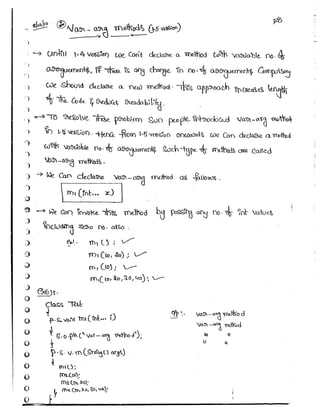 ② Var-arg methods (1.5 version)
→ Until 1.4 version we can't declare a method with variable no. of
arguements, If there is any change in no. of arguements compulsory
we should declare a new method. This approach increases length
of the code & reduces readability.
→ To resolve these problem Sun people introduced var-arg method
in 1.5 version. Hence from 1.5 version onwards we can declare a method
with variable no. of arguements such type of methods are called
var-arg methods.
→ We can declare var-arg method as follows.
m1(int... x)
→ We can invoke this method by passing any no. of int values
including zero no. also.
ex:- m1(); ✓
m1(10, 20); ✓
m1(10); ✓
m1(10, 20, 30, 40); ✓
Ex①:-
class Test
{
p. s. void m1(int... i)
{
S.o.pln("var-arg method");
}
p. s. v. m(String[] args)
{
m1();
m1(10);
m1(10, 20);
m1(10, 20, 30, 40);
}
o/p:- var-arg method
var-arg method
"
"